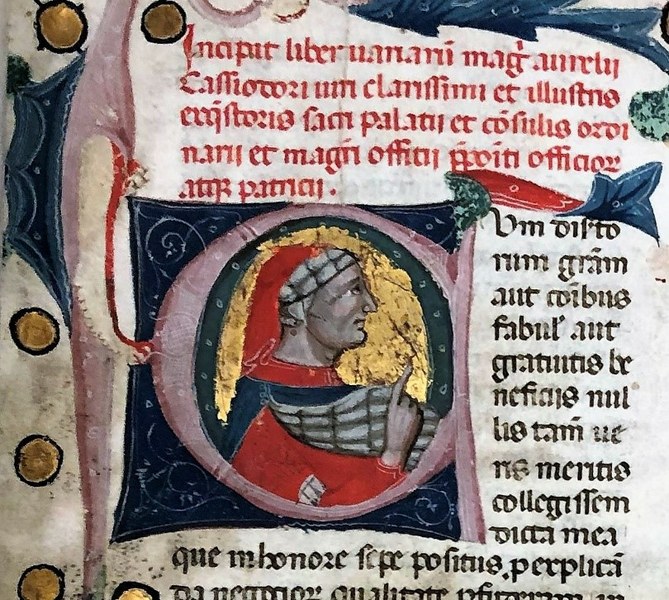 Incipit liber uariarū mag̃ aurelii
Cassiodori uiri clarissimi et illustris
exq̄storis sacri palatii et cōsulis ordi
narii et magr̃i offitii p̄poiti officior
atq patricii.
Vm diſto
rum grãm
aut cōibus
fabul' aut
gratuitis be
neficiis nul
lis tam̃ ue
ris meritis
collegissem
dicta mea
que in honore sepe positus, p explicā
da negotior qualitate